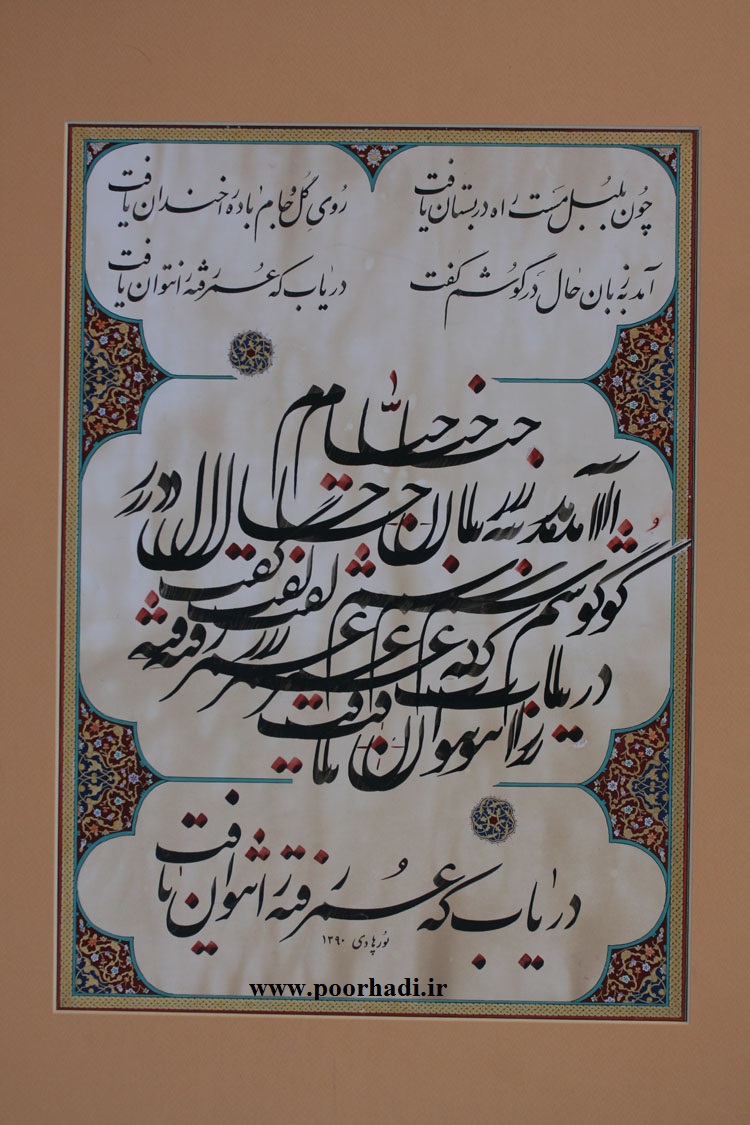 چون بلبل مست راه در بستان یافت روی گل و جام باده را خندان یافت
آمد به زبان حال در گوشم گفت در یاب که عمر رفته را نتوان یافت
خیام
آمد به زبان حال در
گوشم گفت
در یاب که عمر رفته
را نتوان یافت
در یاب که عمر رفته را نتوان یافت
پورهادی ۱۳۹۰
www.poorhadi.ir